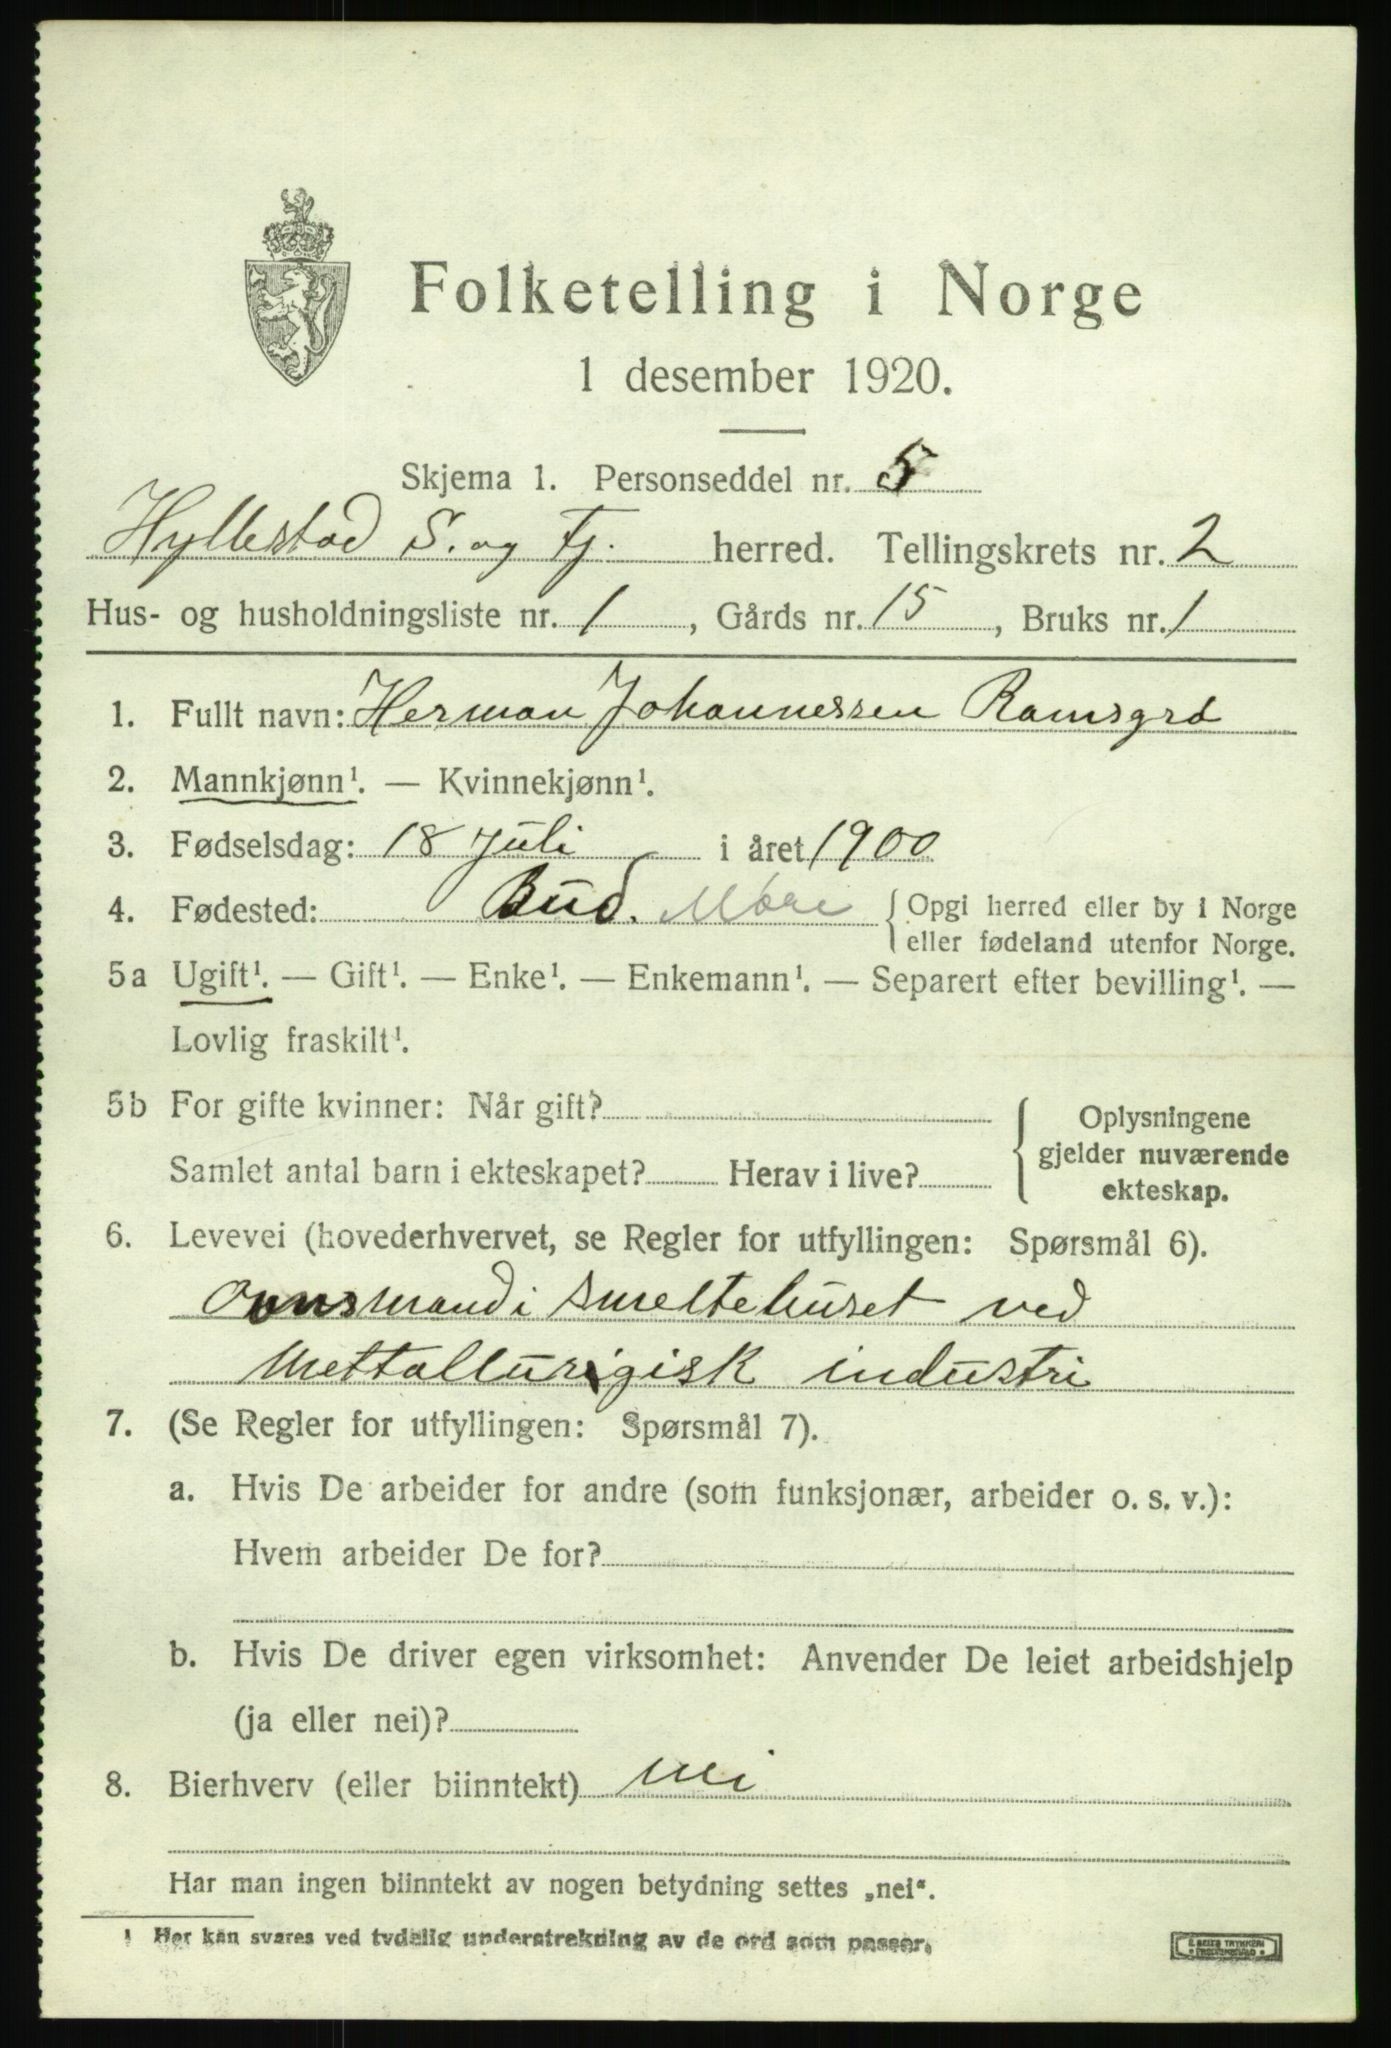 Folketelling i Norge
1 desember 1920.
Skjema 1. Personseddel nr. 5
Hyllestad S. og Fj. herred. Tellingskrets nr. 2
Hus- og husholdningsliste nr. 1, Gårds nr. 15, Bruks nr. 1
1. Fullt navn: Herman Johannessen Ramsgrd
2. Mannkjønn¹. — Kvinnekjønn¹.
3. Fødselsdag: 18 Juli i året 1900
4. Fødested: Bud. Møre { Opgi herred eller by i Norge
eller fødeland utenfor Norge.
5a Ugift¹. — Gift¹. — Enke¹. — Enkemann¹. — Separert efter bevilling¹. —
Lovlig fraskilt¹.
5b For gifte kvinner: Når gift?
Samlet antal barn i ekteskapet? Herav i live?
{ Oplysningene
gjelder nuværende
ekteskap.
6. Levevei (hovederhvervet, se Regler for utfyllingen: Spørsmål 6).
Ovnsmand i smeltehuset ved
Mettallurigisk industri
7. (Se Regler for utfyllingen: Spørsmål 7).
a. Hvis De arbeider for andre (som funksjonær, arbeider o. s. v.):
Hvem arbeider De for?
b. Hvis De driver egen virksomhet: Anvender De leiet arbeidshjelp
(ja eller nei)?
8. Bierhverv (eller biinntekt) nei
Har man ingen biinntekt av nogen betydning settes „nei“.
1 Her kan svares ved tydelig understrekning av de ord som passer.